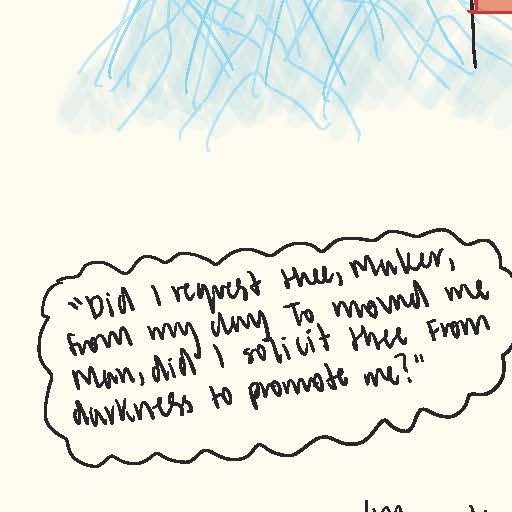 "Did I request thee, Maker,
from my clay To mound me
Man, did I solicit thee From
darkness to promote me?"